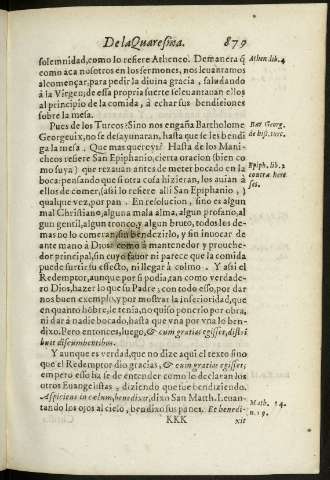 De la Quaresma. 879
solemnidad, como lo refiere Atheneo. De manera q̃
como aca nosotros en los sermones, nos leuantamos
al començar, para pedir la diuina gracia, saludando
à la Virgen; de essa propria suerte se leuantauan ellos
al principio de la comida, à echar sus bendiciones
sobre la mesa.
Athen. lib. 4
Pues de los Turcos: Sino nos engaña Bartholome
Georgeuix, no se desayunaran, hasta que se les bendi
ga la mesa. Que mas quereys? Hasta de los Mani-
cheos refiere San Epiphanio, cierta oracion (bien co
mo suya) que rezauan antes de meter bocado en la
boca: pensando que si otra cosa hizieran, los auian à
ellos de comer, (assi lo refiere alli San Epiphanio,)
qualque vez, por pan. En resolucion, sino es algun
mal Christiano, alguna mala alma, algun profano, al
gun gentil, algun tronco, y algun bruto, todos los de-
mas no le comeran, sin bendezirlo, y sin inuocar de
ante mano à Dios como à mantenedor y prouehe-
dor principal, sin cuyo fauor ni parece que la comida
puede surtir su effecto, ni llegar à colmo. Y assi el
Redemptor, aunque por si podia, tan como verdade-
ro Dios, hazer lo que su Padre; con todo esso, por dar
nos buen exemplo, y por mostrar la inferioridad, que
en quanto hõbre, le tenia, no quiso ponerlo por obra,
ni dar à nadie bocado, hasta que vna por vna lo ben-
dixo. Pero entonces, luego, & cum gratias egisset, distri
buit discumbentibus.
Bar Georg.
de hist. turc.
Epiph. lib. 2
contra here
ses.
Y aunque es verdad, que no dize aqui el texto sino
que el Redemptor dio gracias, & cum gratias egisset,
empero esso ha se de entender como lo declaran los
otros Euangelistas, diziendo que fue bendiziendo.
Aspiciens in cælum, benedixit, dixo San Matth. Leuan-
tando los ojos al cielo, bendixo sus panes. Et benedi-
Math. 14.
n. 19.
KKK xit